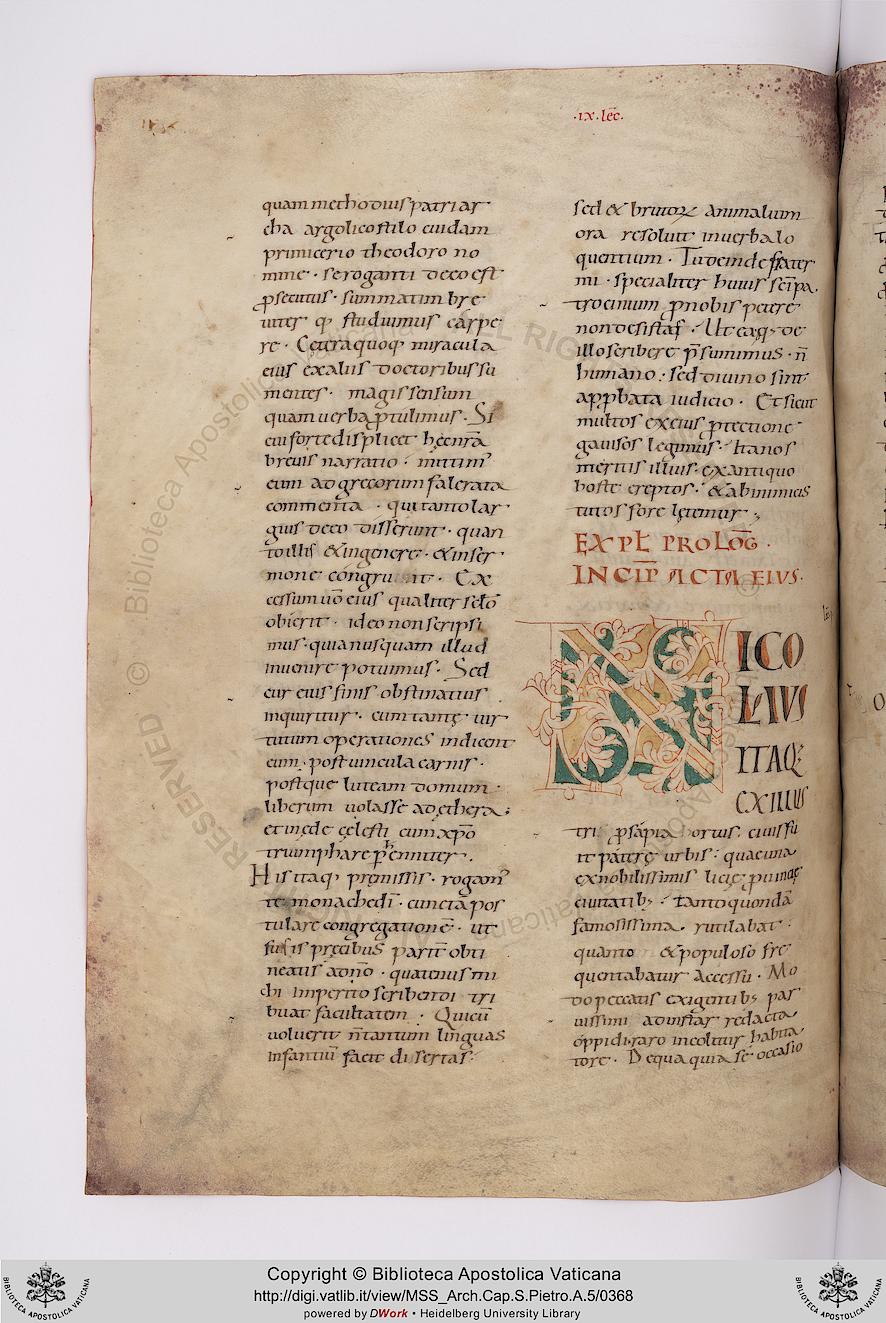 ·ıx·lec̄·
quam methodius patriar
cha argolico stilo cuidam
primicerio theodoro no
mine · se roganti deco est
ꝓsecutus · summatim bre
uiter q; studuimus carpe
re · Cetera quoq; miracula
eius ex aliis doctoribus su
mentes · magis sensum
quam uerba ꝓtulimus · Si
cui forte displicet hec nr̄a
breuis narratio · mittim᾽
eum ad grecorum falerata
commenta · qui tanto lar
gius deco disserunt · quan
to illis & ingenere · & inser
mone congruunt · Ex
cessum uō eius qualiter scl̄o
obierit · ideo non scripsi
mus · quia nusquam illud
inuenire potuimus · Sed
cur eius finis obstinatius
inquiritur · cum tantę uir
tutum operationes indicent
eum · post uincula carnis ·
postque luteam domum ·
liberum uolasse ad ethera ;
et in ęde cęlesti cum xp̄o
triumphare phenniter ·
His itaq; pręmissis · rogam᾽
te monache di᾽ · cunctā pos
tulare congregationē · ut
suis pręcibus parit̄ obti
neatis ad nō · quatenus mi
chi imperito scribendi tri
buat facultatem · Qui cū
uoluerit n̄ tantum linguas
infantiū facit disertas ·
sed & brutoꝝ animalium
ora resoluit in uerba lo
quentium · Tu deinde frater
mi · specialiter huius sc̄i pa
trocinium ꝓ nobis petere
non desistas · Ut ea q; de
illo scribere p̄sumimus · n̄
humano : sed diuino sint
apꝓbata iudicio · Et sicut
multos ex eius ꝓtectione
gauisos legimus · ita nos
meritis illius · ex antiquo
hoste ereptos · & ab inimicis
tutos fore lętemur ·,
EXPL̄ PROLOḠ ·
INCIP̄ ACTA EIUS ·
NICO
LAUS
ITAQ;
EX ILLUS
tri ꝓsapia ortus · ciuis fu
it paterę urbis · quae una
ex nobilissimis licię ꝓuincię
ciuitatib; · tanto quondā
famosissima · rutilabat ·
quanto & populoso fre
quentabatur accessu · Mo
do peccatis exigentib; par
uissimi ad instar redacta
oppidi · raro incolitur habita
tore · De qua quia se occasio
RESERVED © Biblioteca Apostolica Vaticana
Copyright © Biblioteca Apostolica Vaticana
http://digi.vatlib.it/view/MSS_Arch.Cap.S.Pietro.A.5/0368
powered by DWork • Heidelberg University Library
BIBLIOTECA APOSTOLICA VATICANA
BIBLIOTECA APOSTOLICA VATICANA